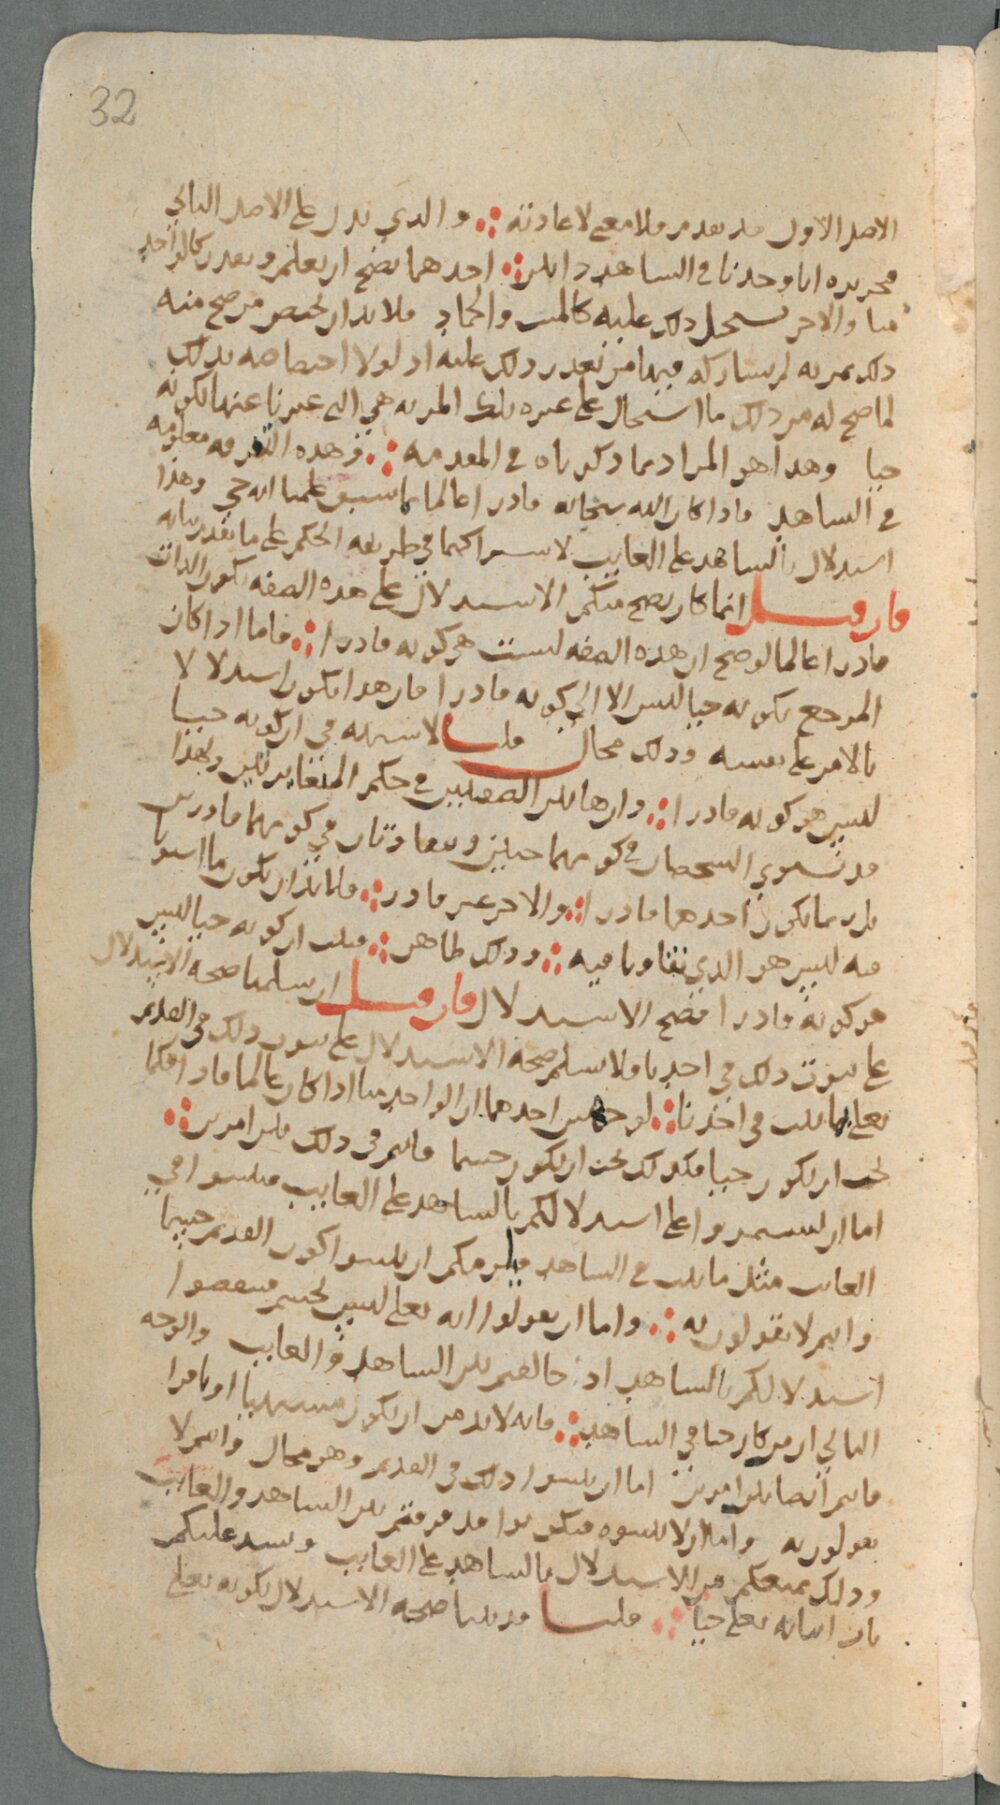 32
الاصل الاول قد تقدم فلا معنى لاعادته ؞ والذي يدل على الاصل الثاني
تحريره انا وجدنا في الشاهد ذاتين ؞ احدهما يصح ان يعلم ويقدر كالواحد
منا والاخر يستحيل ذلك عليه كالميت والجماد فلا بد ان يختص من صح منه
ذلك بمزيه لم يشاركه فيها من تعذر ذلك عليه اذ لولا اختصاصه بذلك
لما صح له من ذلك ما استحال على غيره تلك المزيه هي التي عبرنا عنها بكونه
حيا وهذا هو المراد بما ذكرناه في المقدمه ؞ فهذه التفرقه معلومه
في الشاهد فاذا كان الله سبحانه قادرا عالما بما سبق علمنا انه حي وهذا
استدلال بالشاهد على الغايب لاشتراكهما في طريقه الحكم على ما تقدم بيانه
فان قيل انما كان يصح منكم الاستدلال على هذه الصفه بكون الذات
قادرا عالما لو صح ان هذه الصفه ليست هي كونه قادرا ؞ فاما اذا كان
المرجع بكونه حيا ليس الا الى كونه قادرا فان هذا يكون استدلالا
بالامر على نفسه وذلك محال قلنا لا شبهه في ان كونه حيا
ليس هو كونه قادرا ؞ وان هاتين الصفتين في حكم المتغايرتين ولهذا
قد يستوي الشخصان في كونهما حيين ويتفاوتان في كونهما قادرين
بل ربما يكون احدهما قادرا ؞ والاخر غير قادر ؞ فلا بد ان يكون ما استويا
فيه ليس هو الذي تفاوتا فيه ؞ وذلك ظاهر ؞ فثبت ان كونه حيا ليس
هو كونه قادرا فصح الاستدلال فان قيل ان سلمنا صحه الاستدلال
على ثبوت ذلك في احدنا فلا نسلم صحه الاستدلال على ثبوت ذلك في القديم
تعلى بما ثبت في احدنا ؞ لوجهين احدهما ان الواحد منا اذا كان عالما قادرا فكما
يجب ان يكون حيا فكذلك يجب ان يكون جسما فانتم في ذلك بين امرين ؞
اما ان تستمروا على استدلالكم بالشاهد على الغايب فتثبتوا في
الغايب مثل ما ثبت في الشاهد فيلزمكم ان تثبتوا كون القديم جسما
وانتم لا تقولون به ؞ واما ان تقولوا انه تعلى ليس بجسم فتنقضوا
استدلالكم بالشاهد اذ خالفتم بين الشاهد والغايب والوجه
الثاني ان من كان حيا في الشاهد ؞ فانه لا بد من ان يكون مشتهيا او نافرا
فانتم ايضا بين امرين اما ان تثبتوا ذلك في القديم وهو محال وانتم لا
تقولون به واما ان لا تثبتوه فتكونوا قد فرقتم بين الشاهد والغايب
وذلك يمنعكم من الاستدلال بالشاهد على الغايب ويسد عليكم
باب اثباته تعلى حيا ؞ قلنا قد بينا صحه الاستدلال بكونه تعلى